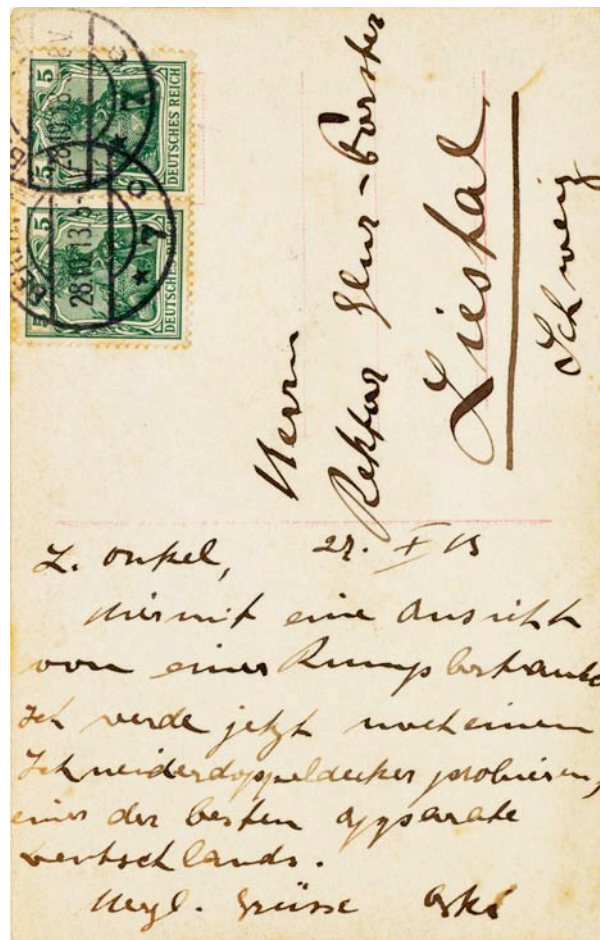 5
5
DEUTSCHES REICH
5
5
DEUTSCHES
28.10.13.8-
7
7
Herrn
Rektor Glur-Forster
Liestal
Schweiz
L. Onkel, 27. X 13
Hiermit eine Ansicht
von einer Rumpler
Ich werde jetzt noch einen
Schneiderdoppeldecker probieren,
einer der besten Apparate
Deutschlands.
Herzl. Grüsse Oski